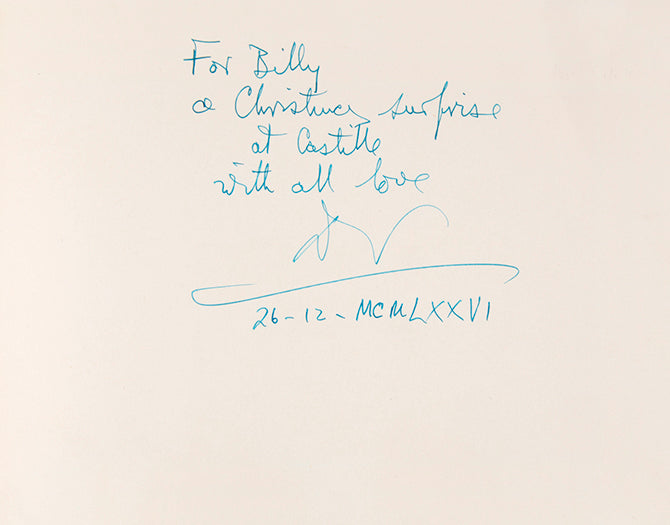 For Billy
a Christmas surprise
at Castille
with all love
26-12-MCMLXXVI